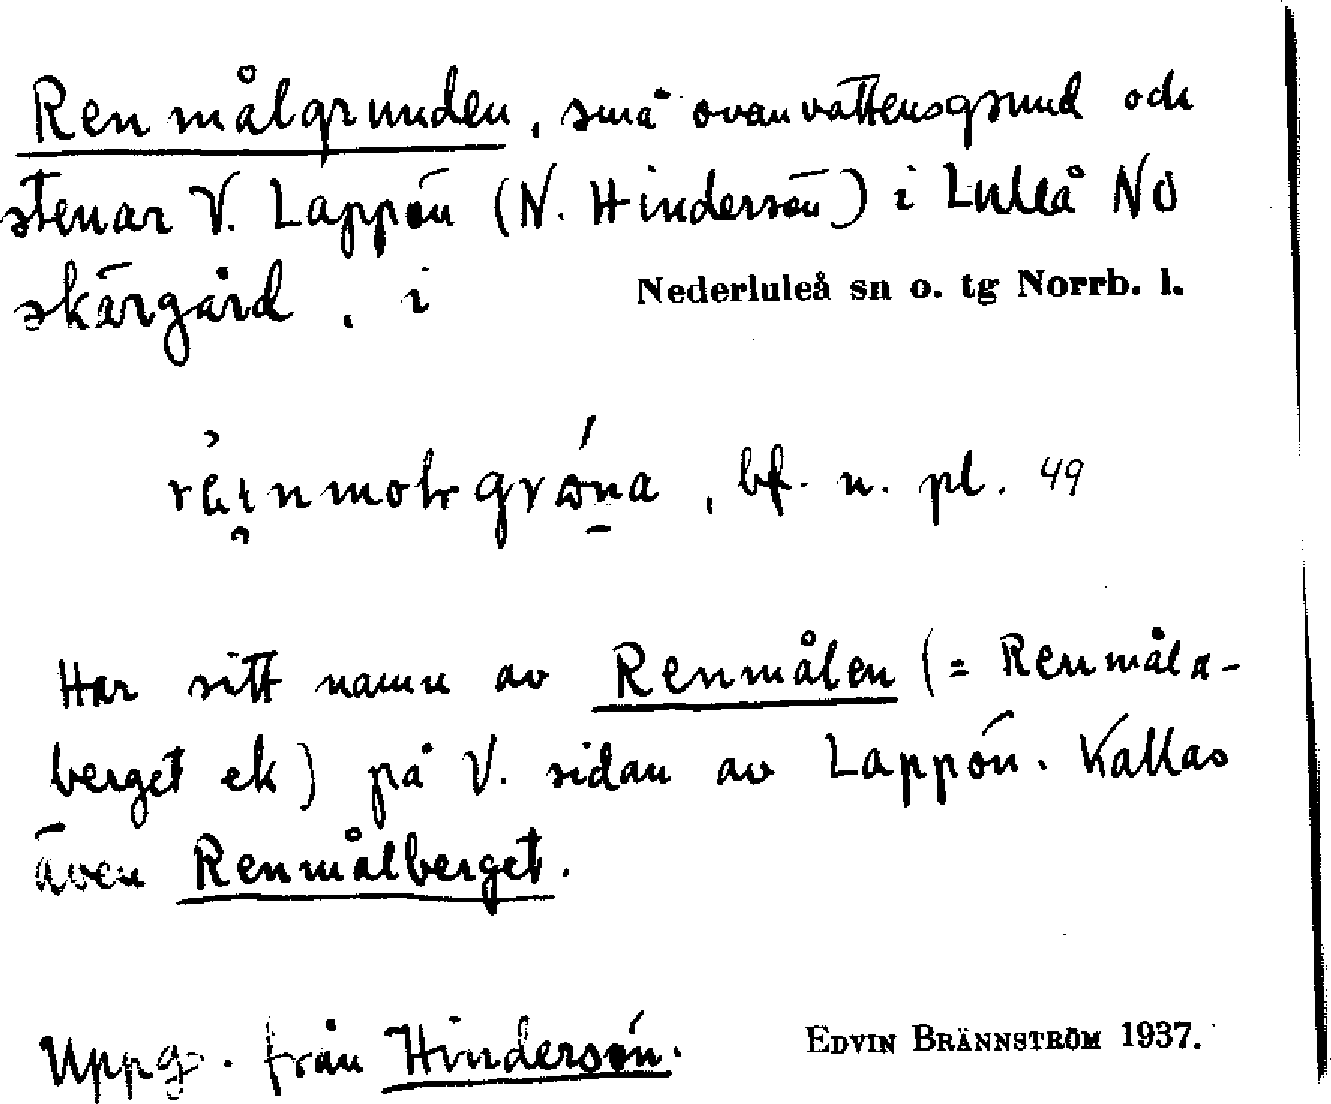 Renmålgrunden, små ovanvattensgrund och
stenar V. Lappön (N. Hindersön) i Luleå NÖ
skärgård, i Nederluleå sn o. tg Norrb. l.
, bf. n. pl. 49
Har sitt namn av Renmålen (= Renmåla-
berget ek) på V. sidan av Lappön. Kallas
även Renmålberget.
Uppg. från Hindersön. EDVIN BRÄNNSTRÖM 1937.